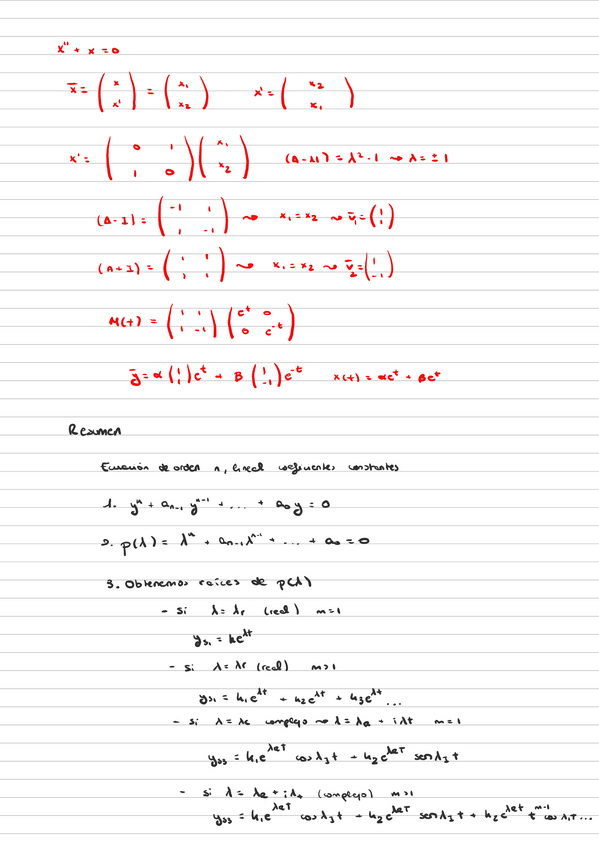 x'' + x = 0
x̄ = ( x ; x' ) = ( x₁ ; x₂ )    x' = ( x₂ ; x₁ )
x' = ( 0 1 ; 1 0 ) ( x₁ ; x₂ )    (A - λI) = λ² - 1 → λ = ± 1
(A - I) = ( -1 1 ; 1 -1 ) ⇝ x₁ = x₂ ⇝ v̄₁ = ( 1 ; 1 )
(A + I) = ( 1 1 ; 1 1 ) ⇝ x₁ = x₂ ⇝ v̄₂ = ( 1 ; -1 )
M(t) = ( 1 1 ; 1 -1 ) ( eᵗ 0 ; 0 e⁻ᵗ )
ȳ = α ( 1 ; 1 ) eᵗ + β ( 1 ; -1 ) e⁻ᵗ    x(t) = αeᵗ + βeᵗ
Resumen
Ecuación de orden n, lineal coeficientes constantes
1. yⁿ + aₙ₋₁ yⁿ⁻¹ + ... + a₀ y = 0
2. p(λ) = λⁿ + aₙ₋₁ λⁿ⁻¹ + ... + a₀ = 0
3. Obtenemos raíces de p(λ)
- si λ = λr (real) m = 1
ys₁ = k e^λt
- si λ = λr (real) m > 1
ys₁ = k₁ e^λt + k₂ e^λt + k₃ e^λt ...
- si λ = λc complejo ⇝ λ = λR + iλt m = 1
ys₃ = k₁ e^λRT cos λ₁t + k₂ e^λRT sen λ₁t
- si λ = λR + iλt (complejo) m > 1
ys₃ = k₁ e^λRT cos λ₁t + k₂ e^λRT sen λ₁t + k₂ e^λRt t^m-1 cos λ₁T ...